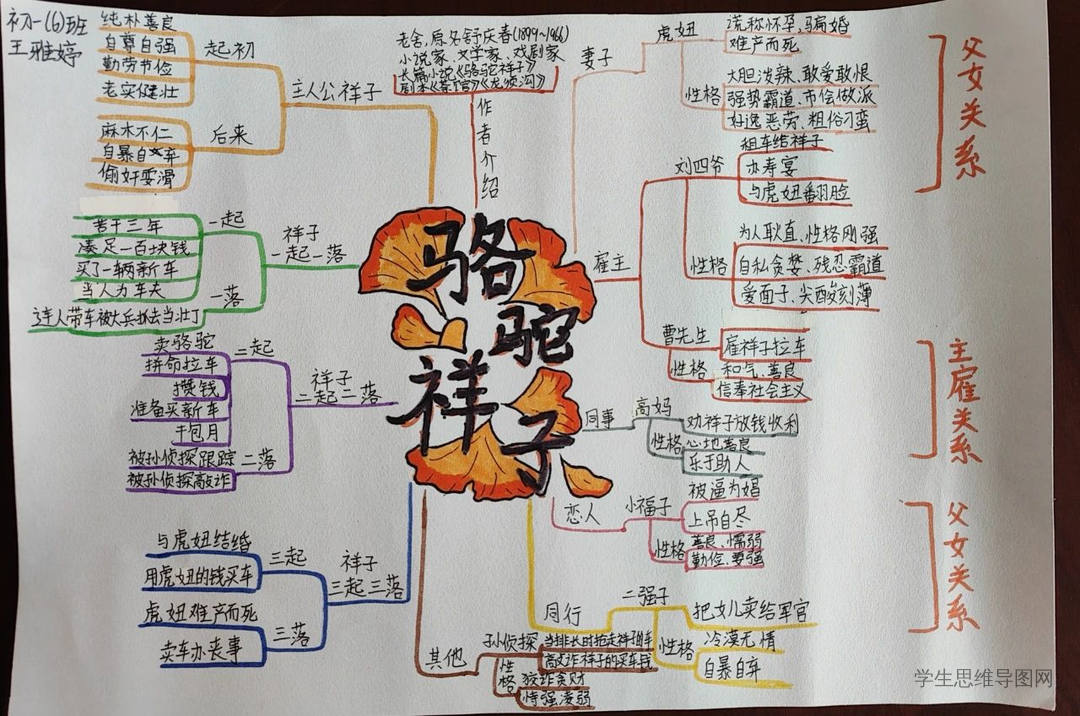 初一(6)班
王雅婷
骆
驼
祥
子
作者介绍
老舍,原名舒庆春(1899~1966)
小说家、文学家、戏剧家
长篇小说《骆驼祥子》
剧本《茶馆》《龙须沟》
主人公祥子
起初
纯朴善良
自尊自强
勤劳节俭
老实健壮
后来
麻木不仁
自暴自弃
偷奸耍滑
祥子
一起一落
一起
苦干三年
凑足一百块钱
买了一辆新车
当人力车夫
一落
连人带车被大兵抓去当壮丁
祥子
二起二落
二起
卖骆驼
拼命拉车
攒钱
准备买新车
干包月
二落
被孙侦探跟踪
被孙侦探敲诈
祥子
三起三落
三起
与虎妞结婚
用虎妞的钱买车
三落
虎妞难产而死
卖车办丧事
妻子
虎妞
谎称怀孕,骗婚
难产而死
性格
大胆泼辣、敢爱敢恨
强势霸道、市侩做派
好逸恶劳、粗俗刁蛮
雇主
刘四爷
租车给祥子
办寿宴
与虎妞翻脸
性格
为人耿直、性格刚强
自私贪婪、残忍霸道
爱面子、尖酸刻薄
曹先生
雇祥子拉车
性格
和气、善良
信奉社会主义
同事
高妈
劝祥子放钱收利
性格
心地善良
乐于助人
恋人
小福子
被逼为娼
上吊自尽
性格
善良、懦弱
勤俭、要强
同行
二强子
把女儿卖给军官
性格
冷漠无情
自暴自弃
其他
孙侦探
当排长时抢走祥子的车
敲诈祥子的买车钱
性格
狡诈贪财
恃强凌弱
父女关系
主雇关系
父女关系
学生思维导图网